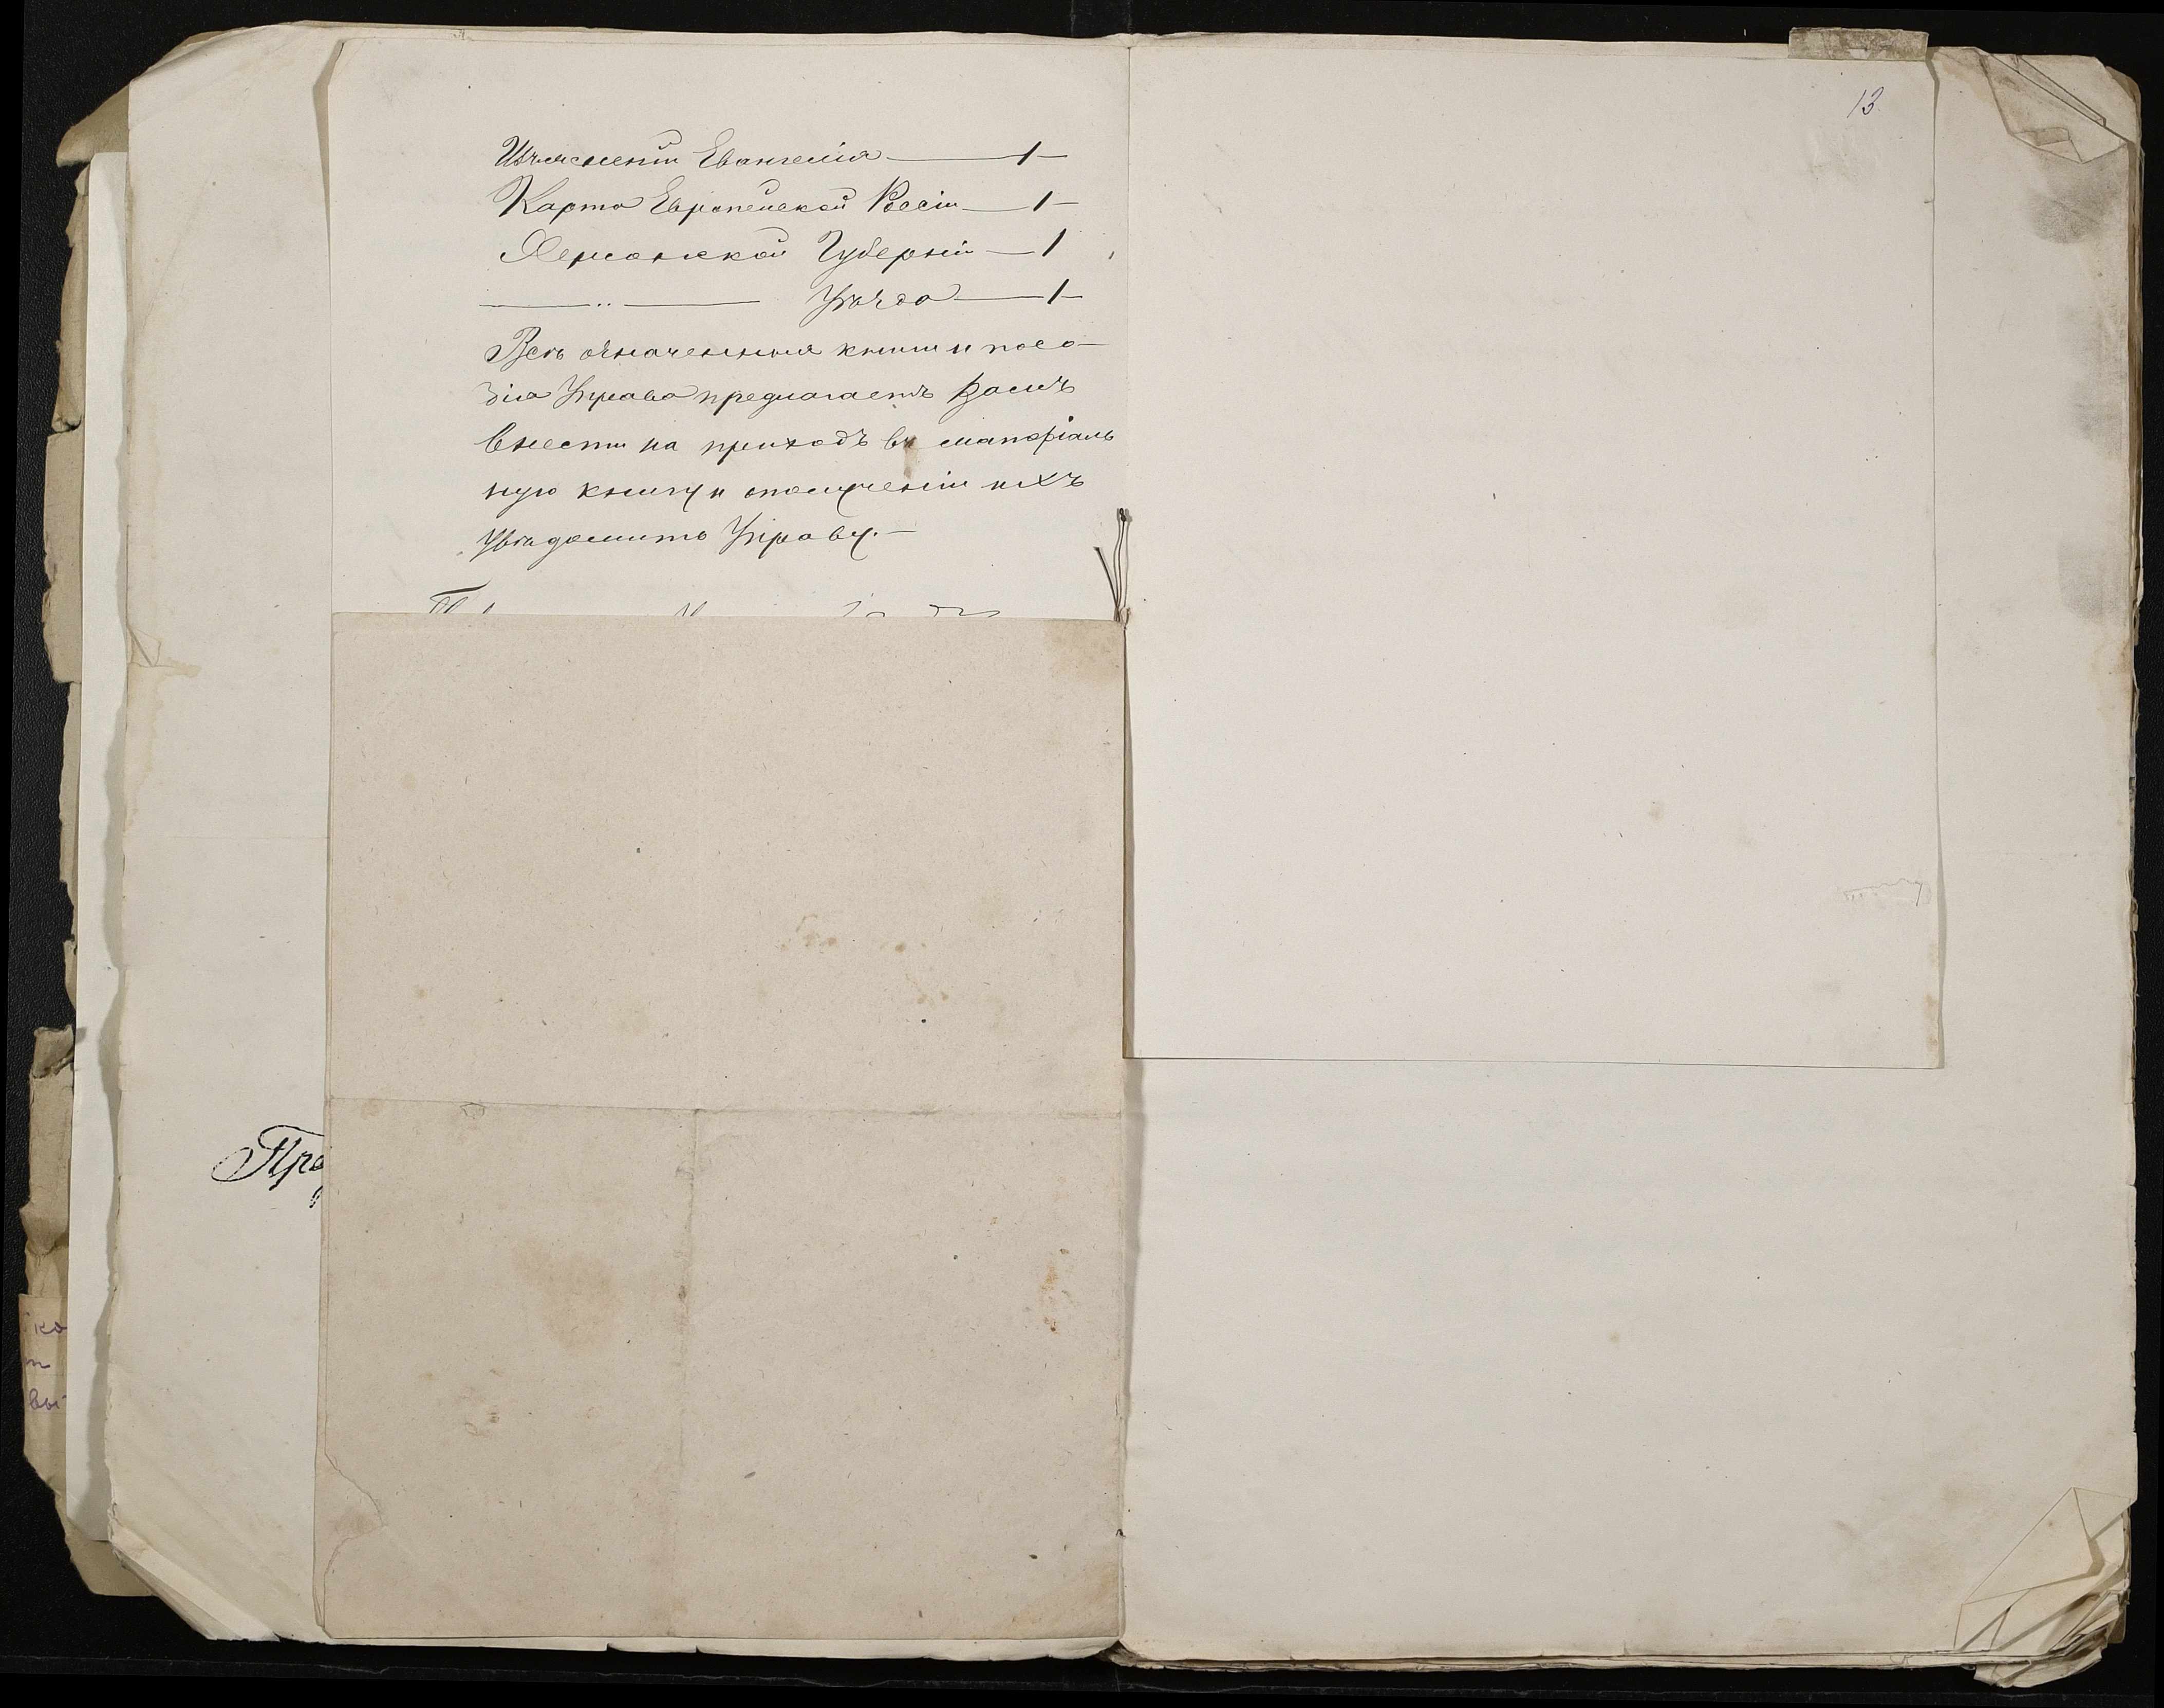 Изъясненій Евангелія — 1 —
Карта Европейской Россіи — 1 —
Херсонской Губерніи — 1
— „ — Уѣзда — 1 —
Всѣ означенныя книги и посо-
бія Управа предлагаетъ Вамъ
внести на приходъ въ матеріаль
ную книгу и о полученіи ихъ
увѣдомить Управу. —
Пре
ко
вы
13